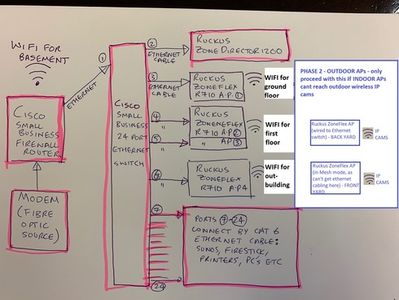 WIFI FOR
BASEMENT
ETHERNET
CISCO
SMALL
BUSINESS
FIREWALL
ROUTER
MODEM
(FIBRE
OPTIC
SOURCE)
①
CISCO
SMALL
BUSINESS
24 PORT
ETHERNET
SWITCH
②
ETHERNET
CABLE
RUCKUS
ZONEDIRECTOR 1200
③
ETHERNET
CABLE
RUCKUS
ZONEFLEX
R710 AP ①
WIFI for
ground
floor
④
"
⑤
"
RUCKUS
ZONEFLEX
R710 AP②
" AP③
WIFI for
first
floor
⑥
"
RUCKUS
ZONEFLEX
R710 AP4
WIFI for
out-
building
⑦
24
PORTS ⑦-24
CONNECT BY CAT 6
ETHERNET CABLE:
SONOS, FIRESTICK,
PRINTERS, PC'S ETC
PHASE 2 - OUTDOOR APs - only
proceed with this if INDOOR APs
cant reach outdoor wireless IP
cams
Ruckus ZoneFlex AP
(wired to Ethernet
switch) - BACK YARD
IP
CAMS
Ruckus ZoneFlex AP
(in Mesh mode, as
can't get ethernet
cabling here) - FRONT
YARD
IP
CAMS